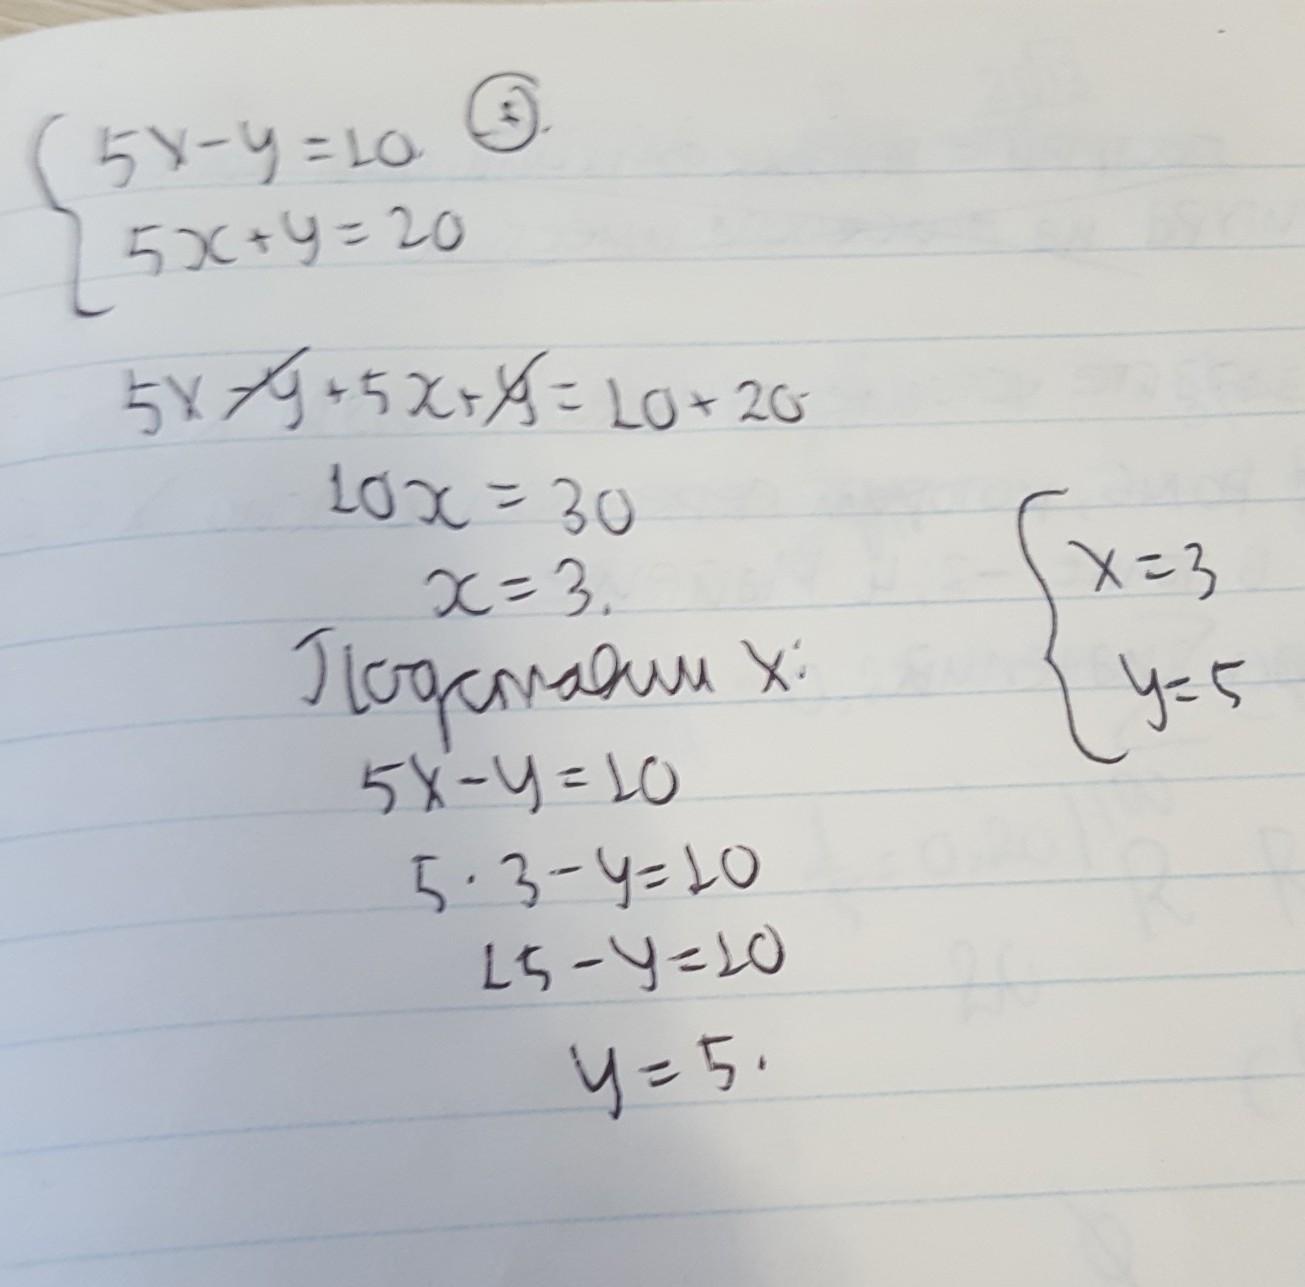 5x-y=10 (+)
5x+y=20
5x-y+5x+y=10+20
10x=30
x=3.
Подставим x:
5x-y=10
5·3-y=10
15-y=10
y=5.
x=3
y=5